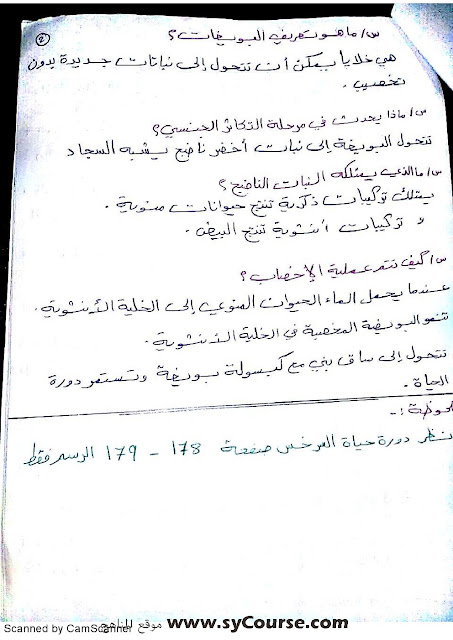 ٤
س/ ما هو تعريف البويغات ؟
هي خلايا يمكن أن تتحول إلى نباتات جديدة بدون
تخصيب .
س/ ماذا يحدث في مرحلة التكاثر الجنسي ؟
تتحول البويغة إلى نبات أخضر ناضج يشبه السجاد
س/ ما الذي يمتلكه النبات الناضج ؟
يمتلك تركيبات ذكرية تنتج حيوانات منوية .
و تركيبات أنثوية تنتج البيض .
س/ كيف تتم عملية الإخصاب ؟
عندما يحمل الماء الحيوان المنوي إلى الخلية الأنثوية .
تنمو البويضة المخصبة في الخلية الأنثوية .
تتحول إلى ساق بني مع كبسولة بويغة وتستمر دورة
الحياة .
لحوظة :-
نظر دورة حياة السرخس صفحة ١٧٨ - ١٧٩ الرسم فقط
Scanned by CamScanner
موقع المناهج www.syCourse.com